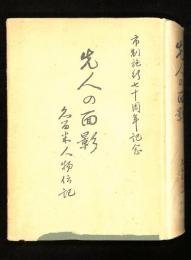 市制施行七十周年記念
先人の面影
久留米人物伝記
先人の面影